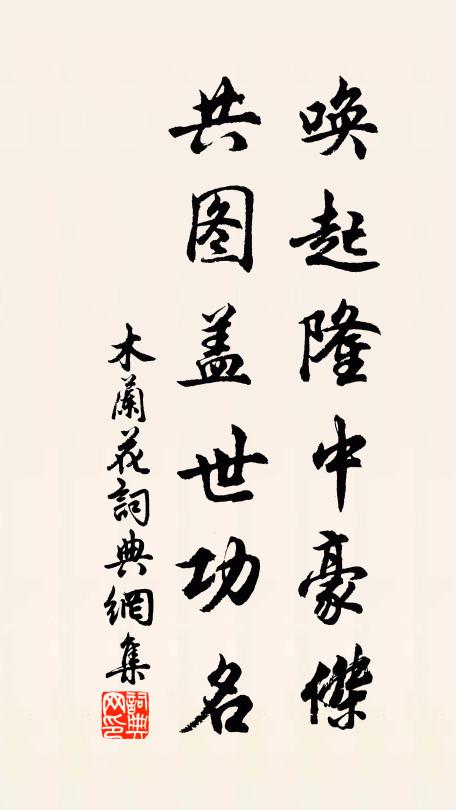 唤起隆中豪傑
共图盖世功名
木蘭花詞典網集
詞典网印